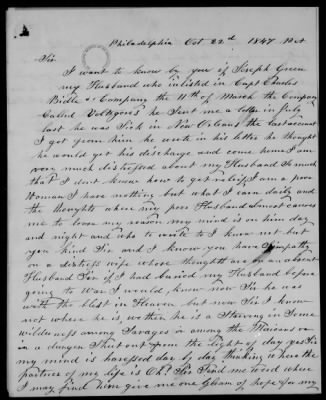 Philadelphia Oct 22d 1847 Pa
Sir
I want to know by you if Joseph Green
my Husband who inlisted in Capt Charles
Bidle s Company the 11th of March the Company
Called Voltigors he Sent me a letter in July
last he was Sick in New Orleans the last account
I got from him he wrote in his letter he thought
he would get his discharge and come home I am
very much distressed about my Husband So much
that I dont know how to get relief I am a poor
Woman I have nothing but what I earn daily and
the thoughts where my poor Husband almost causes
me to loose my reason my mind is on him day
and night and who to write to I know not but
you kind Sir and I know you have Simpathy
on a distress wife whose thoughts are on an absent
Husband Sir if I had buried my Husband before
going to War I would know now Sir he was
with the blest in Heaven but now Sir I know
not where he is, wether he is a Starving in Some
wilderness among Savages or among the
in a dungen Shut out from the light of day yes Sir
my mind is harrased day by day thinking where the
partner of my life is Oh! Sir Send me word where
I may find him give me one Gleam of hope for my